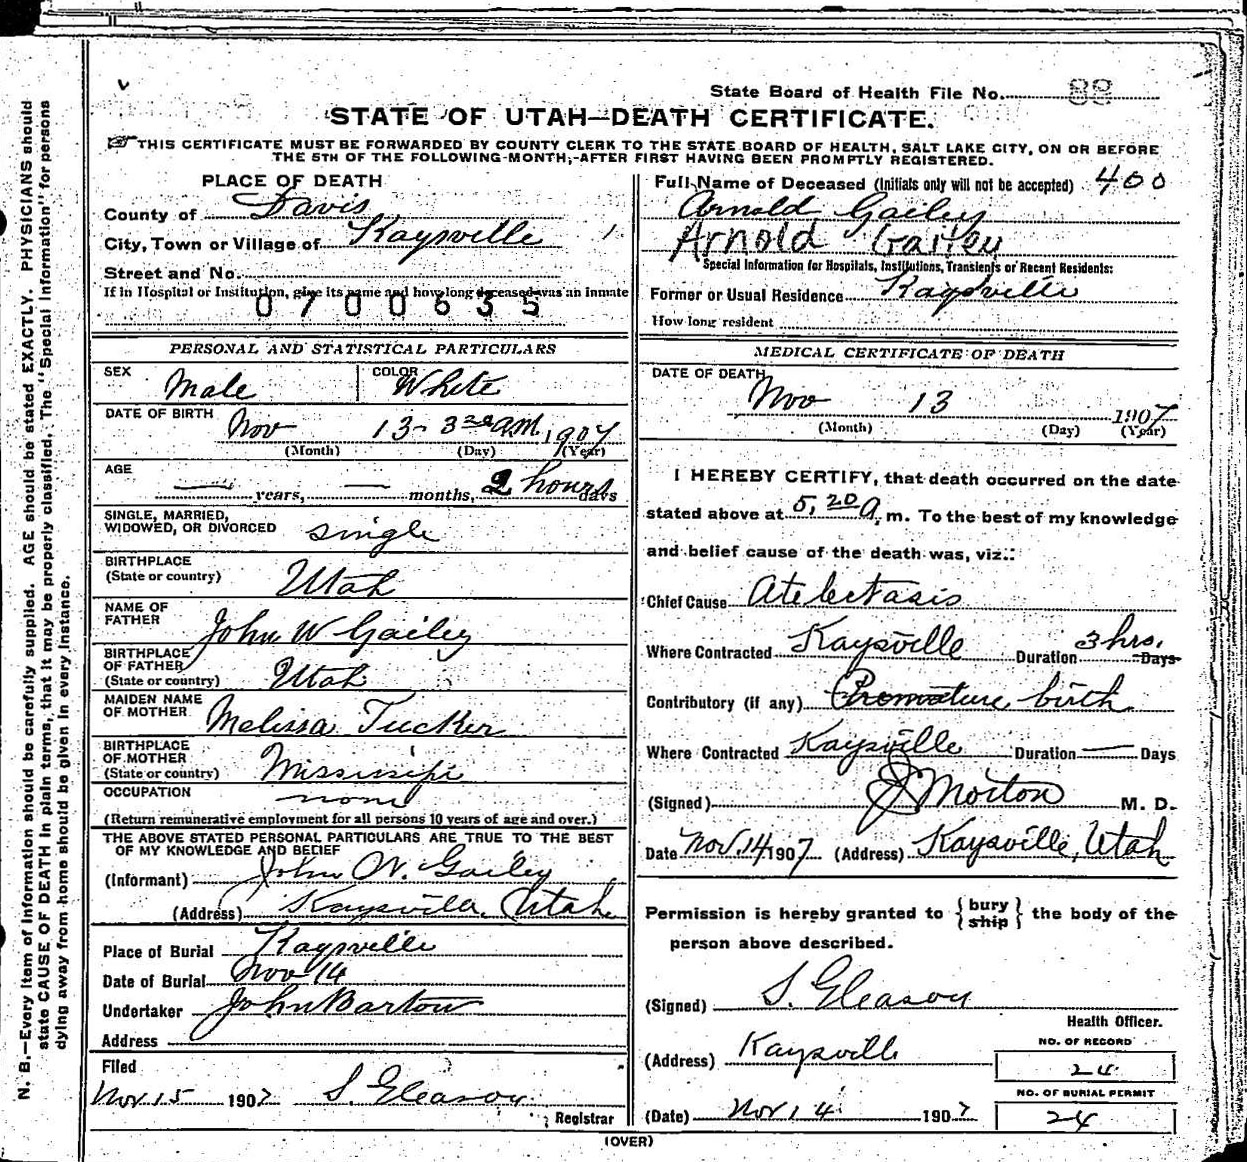 State Board of Health File No. 88
STATE OF UTAH—DEATH CERTIFICATE.
THIS CERTIFICATE MUST BE FORWARDED BY COUNTY CLERK TO THE STATE BOARD OF HEALTH, SALT LAKE CITY, ON OR BEFORE
THE 5TH OF THE FOLLOWING MONTH, AFTER FIRST HAVING BEEN PROMPTLY REGISTERED.
PLACE OF DEATH
County of Davis
City, Town or Village of Kaysville
Street and No.
If in Hospital or Institution, give its name and how long deceased was an inmate
0700635
PERSONAL AND STATISTICAL PARTICULARS
SEX Male COLOR White
DATE OF BIRTH Nov 13 - 3 20 am 1907
(Month) (Day) (Year)
AGE — years, — months, 2 hours days
SINGLE, MARRIED,
WIDOWED, OR DIVORCED single
BIRTHPLACE
(State or country) Utah
NAME OF
FATHER John W Gailey
BIRTHPLACE
OF FATHER
(State or country) Utah
MAIDEN NAME
OF MOTHER Melissa Tucker
BIRTHPLACE
OF MOTHER
(State or country) Mississipi
OCCUPATION none
(Return remunerative employment for all persons 10 years of age and over.)
THE ABOVE STATED PERSONAL PARTICULARS ARE TRUE TO THE BEST
OF MY KNOWLEDGE AND BELIEF
(Informant) John W. Gailey
(Address) Kaysville, Utah
Place of Burial Kaysville
Date of Burial Nov 14
Undertaker John Barton
Address
Filed
Nov 15 1907 S. Gleason
Registrar
Full Name of Deceased (Initials only will not be accepted) 400
Arnold Gailey
Arnold Gailey
Special Information for Hospitals, Institutions, Transients or Recent Residents:
Former or Usual Residence Kaysville
How long resident
MEDICAL CERTIFICATE OF DEATH
DATE OF DEATH
Nov 13 1907
(Month) (Day) (Year)
I HEREBY CERTIFY, that death occurred on the date
stated above at 5.20 A. m. To the best of my knowledge
and belief cause of the death was, viz.:
Chief Cause Atelectasis
Where Contracted Kaysville Duration 3 hrs. Days
Contributory (if any) Premature birth
Where Contracted Kaysville Duration — Days
(Signed) J Morton M. D.
Date Nov. 14 1907 (Address) Kaysville, Utah
Permission is hereby granted to {bury ship} the body of the
person above described.
(Signed) S. Gleason
Health Officer.
(Address) Kaysville
NO. OF RECORD
24
NO. OF BURIAL PERMIT
24
(Date) Nov 14 1907
(OVER)
N. B.—Every item of information should be carefully supplied. AGE should be stated EXACTLY. PHYSICIANS should
state CAUSE OF DEATH in plain terms, that it may be properly classified. The "Special Information" for persons
dying away from home should be given in every instance.